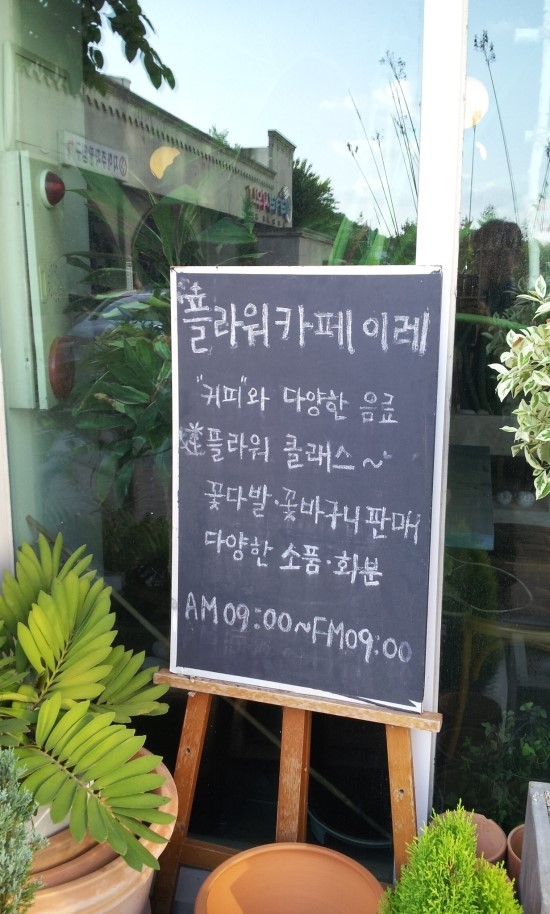 플라워카페 이레
"커피"와 다양한 음료
플라워 클래스~
꽃다발·꽃바구니 판매
다양한 소품·화분
AM 09:00~FM09:00